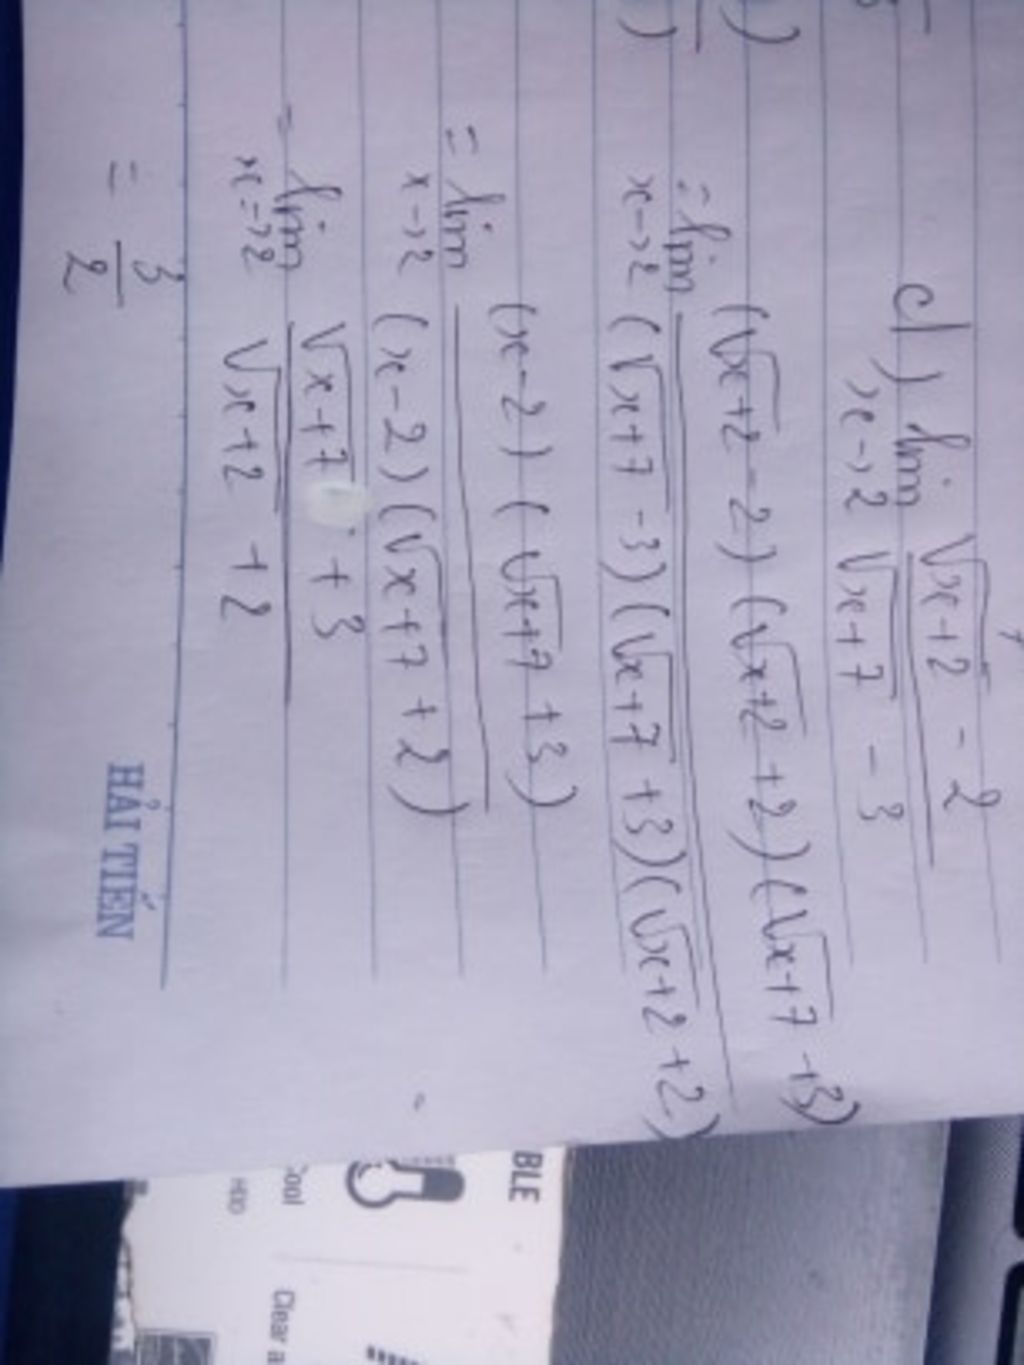 c) lim x->2 (√(x+2) - 2)/(√(x+7) - 3)
= lim x->2 ((√(x+2) - 2)(√(x+2) + 2)(√(x+7) + 3))/((√(x+7) - 3)(√(x+7) + 3)(√(x+2) + 2))
= lim x->2 ((x-2)(√(x+7) + 3))/((x-2)(√(x+7) + 2))
= lim x->2 (√(x+7) + 3)/(√(x+2) + 2)
= 3/2
HẢI TIẾN
BLE
Cool
HDD
Clear a